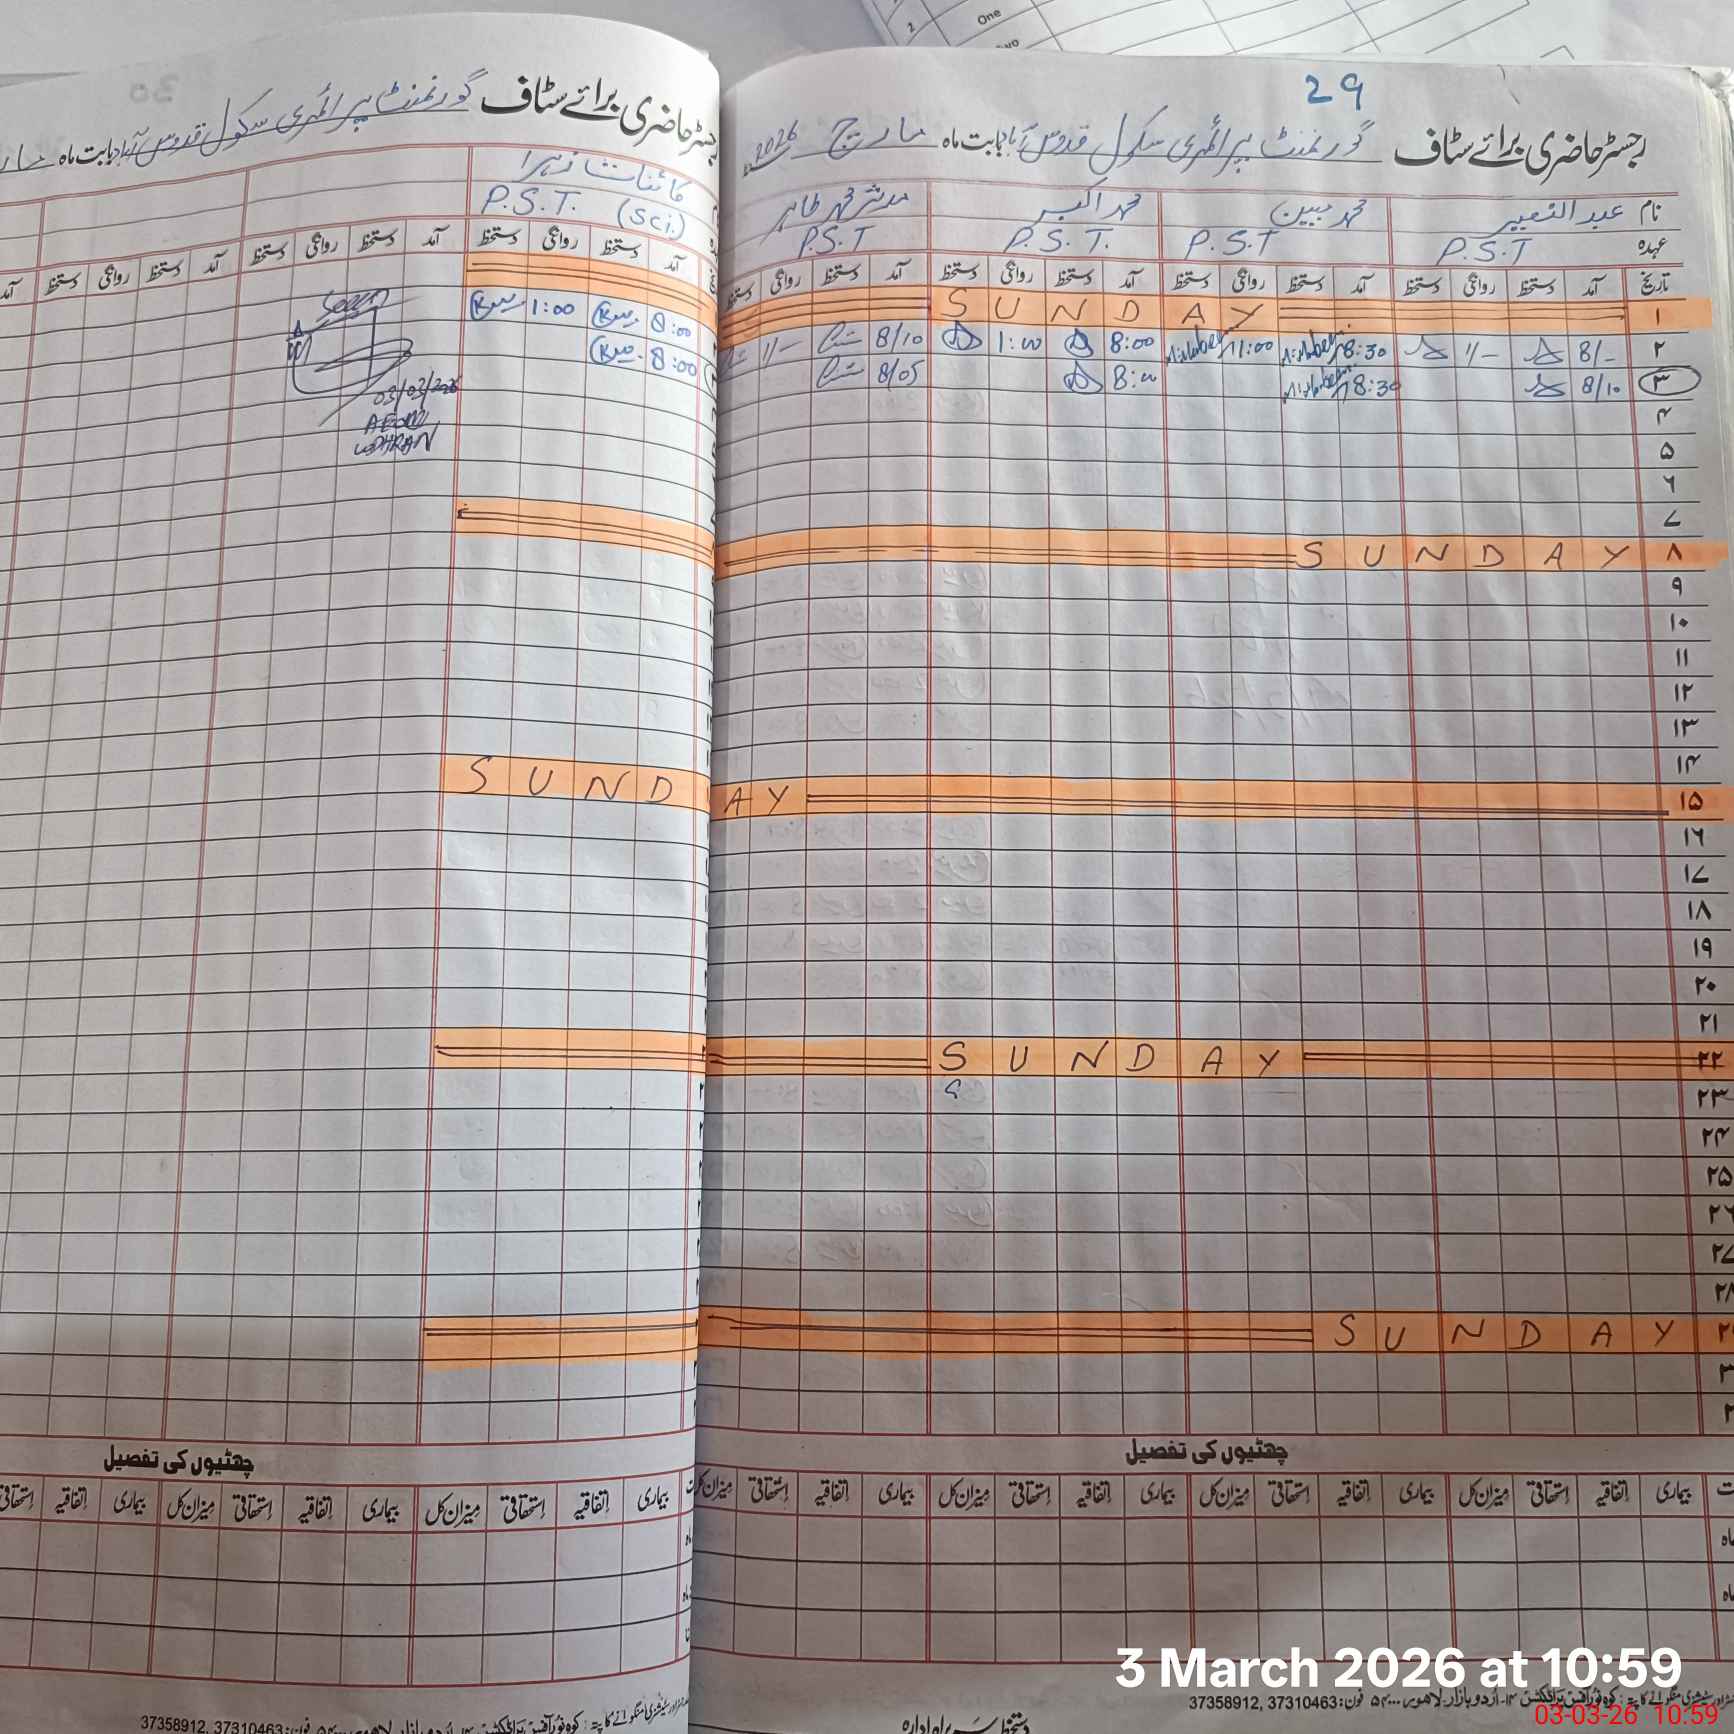 2
One
29
رجسٹر حاضری برائے سٹاف گورنمنٹ پرائمری سکول قدوس آباد بابت ماہ مارچ 2026
نام عبد النعیم محمد مبین محمد اکبر مدثر محمد طاہر
عہدہ P.S.T P.S.T P.S.T. P.S.T
تاریخ آمد دستخط روانگی دستخط آمد دستخط روانگی دستخط آمد دستخط روانگی دستخط آمد دستخط روانگی دستخط
۱ SUNDAY
۲ 8/- 1/- 8:30 1:00 8:00 1:00 8/10 1/-
۳ 8/10 8:30 8:00 8/05
۴
۵
۶
۷
۸ SUNDAY
۹
۱۰
۱۱
۱۲
۱۳
۱۴
۱۵ SUNDAY
۱۶
۱۷
۱۸
۱۹
۲۰
۲۱
۲۲ SUNDAY
۲۳
۲۴
۲۵
۲۶
۲۷
۲۸
SUNDAY
چھٹیوں کی تفصیل
بیماری اتفاقیہ استحقاقی میزان کل بیماری اتفاقیہ استحقاقی میزان کل بیماری اتفاقیہ استحقاقی میزان کل بیماری اتفاقیہ استحقاقی میزان کل
فون: 37358912, 37310463
رجسٹر حاضری برائے سٹاف گورنمنٹ پرائمری سکول قدوس آباد بابت ماہ
کائنات زہرا
P.S.T. (Sci.)
آمد دستخط روانگی دستخط آمد دستخط روانگی دستخط آمد دستخط روانگی دستخط آمد
8:00 1:00
8:00
Seen
03/03/2026
AEO
LODHRAN
چھٹیوں کی تفصیل
بیماری اتفاقیہ استحقاقی میزان کل بیماری اتفاقیہ استحقاقی میزان کل بیماری اتفاقیہ
فون: 37358912, 37310463
3 March 2026 at 10:59
03-03-26 10:59